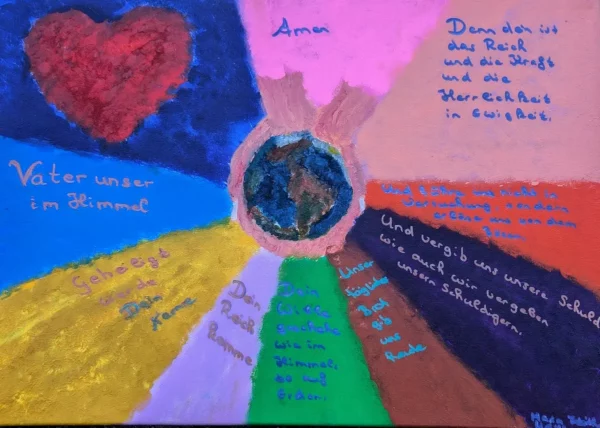 Vater unser
im Himmel
Geheiligt
werde
Dein
Name
Dein
Reich
Komme
Dein
Wille
geschehe
wie im
Himmel,
so auf
Erden.
Unser
tägliches
Brot
gib
uns
heute
Und vergib uns unsere Schuld
wie auch wir vergeben
unsern Schuldigern.
Und führe uns nicht in
Versuchung sondern
erlöse uns von dem
Bösen
Denn dein ist
das Reich
und die Kraft
und die
Herrlichkeit
in Ewigkeit.
Amen